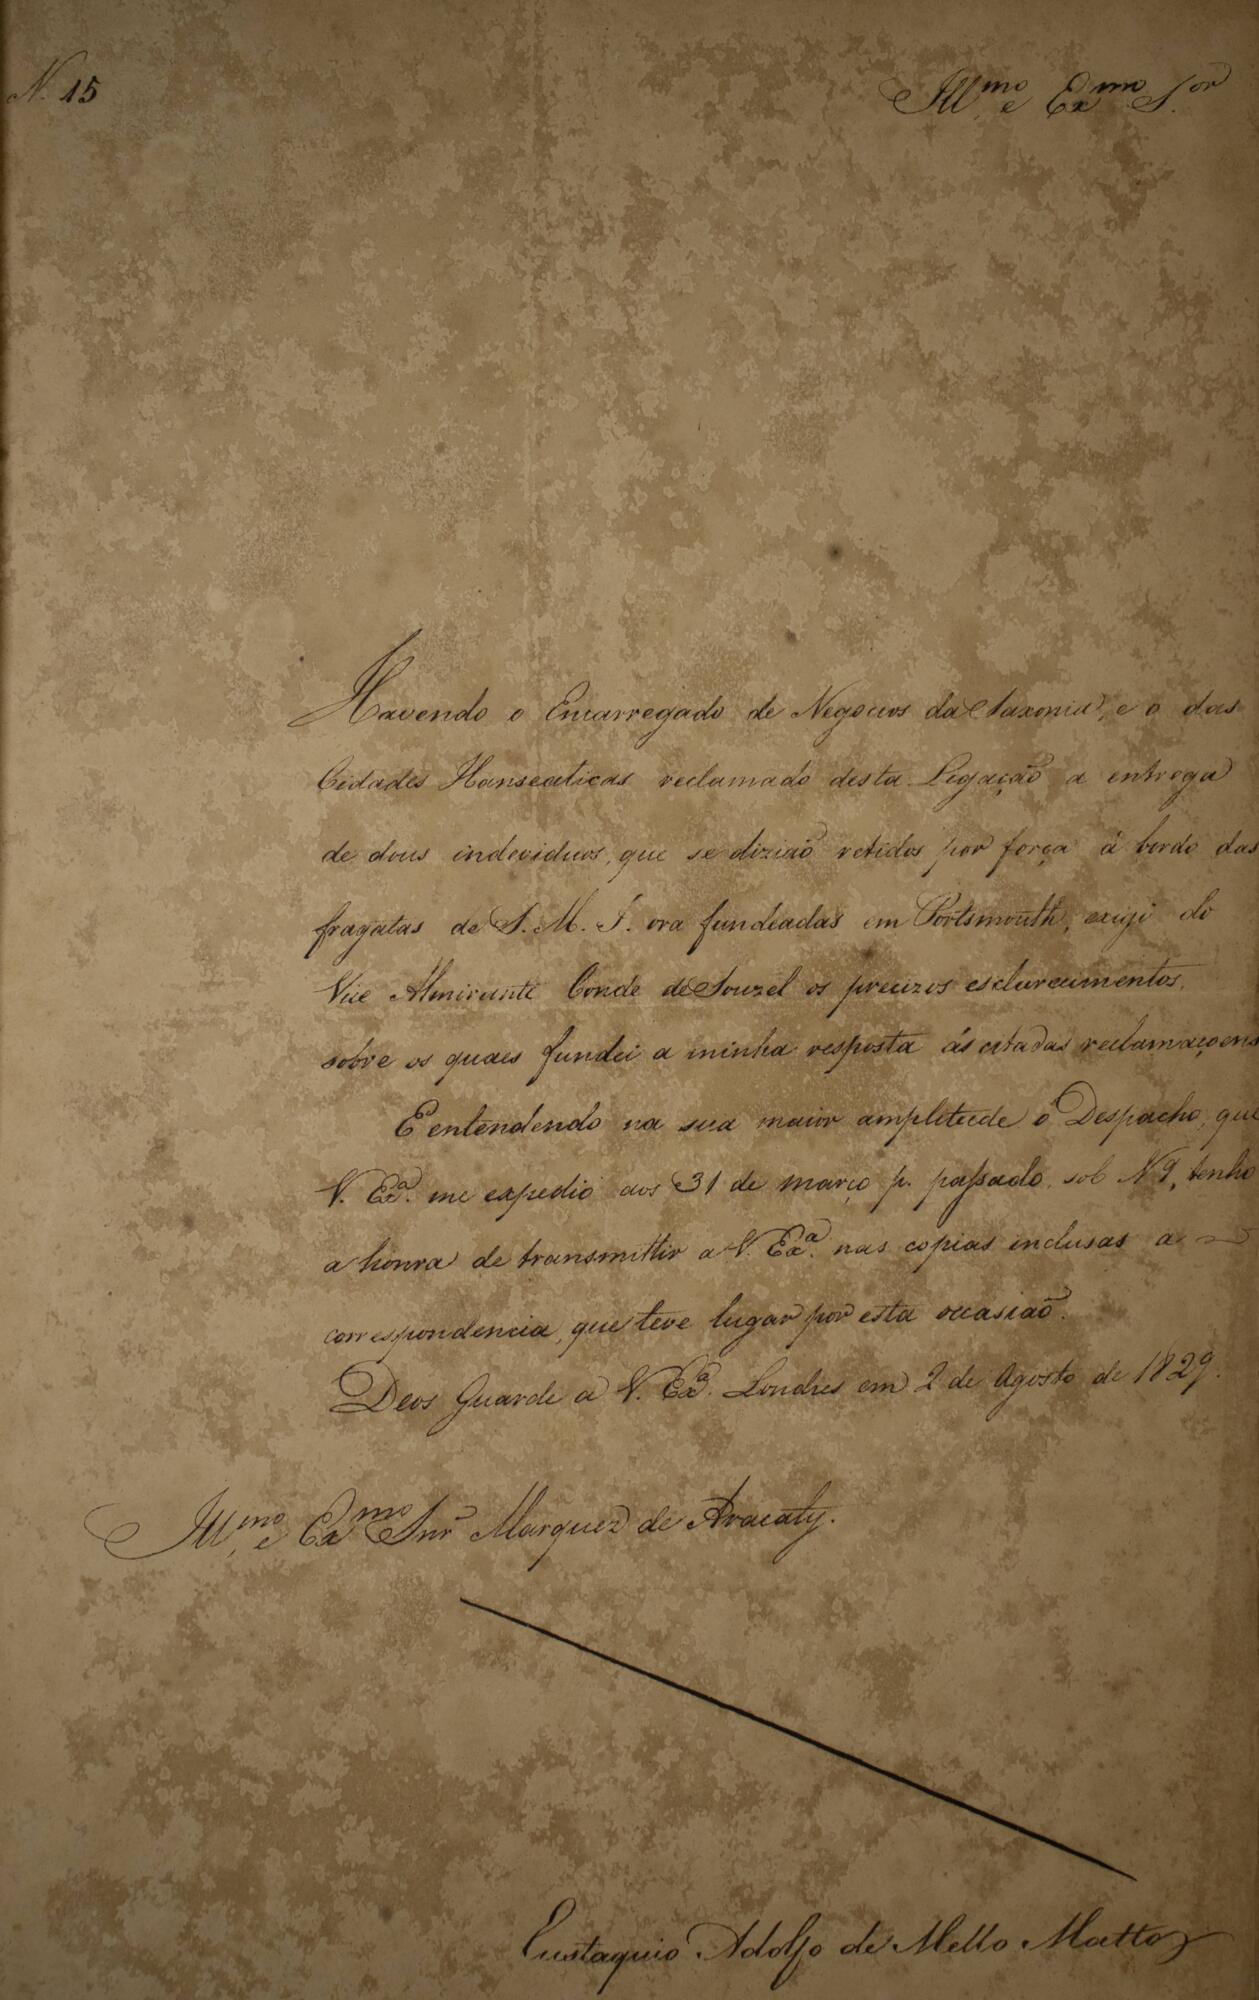 N. 15
Ill.mo e Ex.mo S.or
Havendo o Encarregado de Negocios da Saxonia, e o das
Cidades Hanseaticas reclamado desta Legação a entrega
de dous individuos, que se dizião retidos por força á bordo das
fragatas de S. M. I. ora fundeadas em Portsmouth, exigi do
Vice Almirante Conde de Souzel os precizos esclarecimentos,
sobre os quaes fundei a minha resposta ás citadas reclamaçoens
E entendendo na sua maior amplitude o Despacho, que
V. Ex.a me expedio aos 31 de março p. passado, sob N 9, tenho
a honra de transmittir a V. Ex.a nas copias inclusas a
correspondencia, que teve lugar por esta occasião.
Deos Guarde a V. Ex.a Londres em 2 de Agosto de 1829.
Ill.mo e Ex.mo Snr Marquez de Aracaty.
Eustaquio Adolfo de Mello Mattos